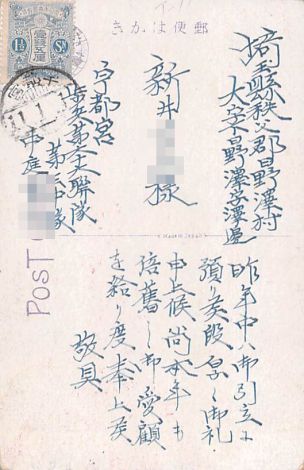 郵便はがき
埼玉縣秩父郡日野澤村
大字下日野澤字澤邊
新井
様
宇都宮
歩兵第六六聯隊
第三中隊
中庭
昨年中ハ御引立に
預り候段厚く御礼
申上候尚本年も
倍舊之御愛顧
を給り度奉上候
敬具
POST
1½
Sn